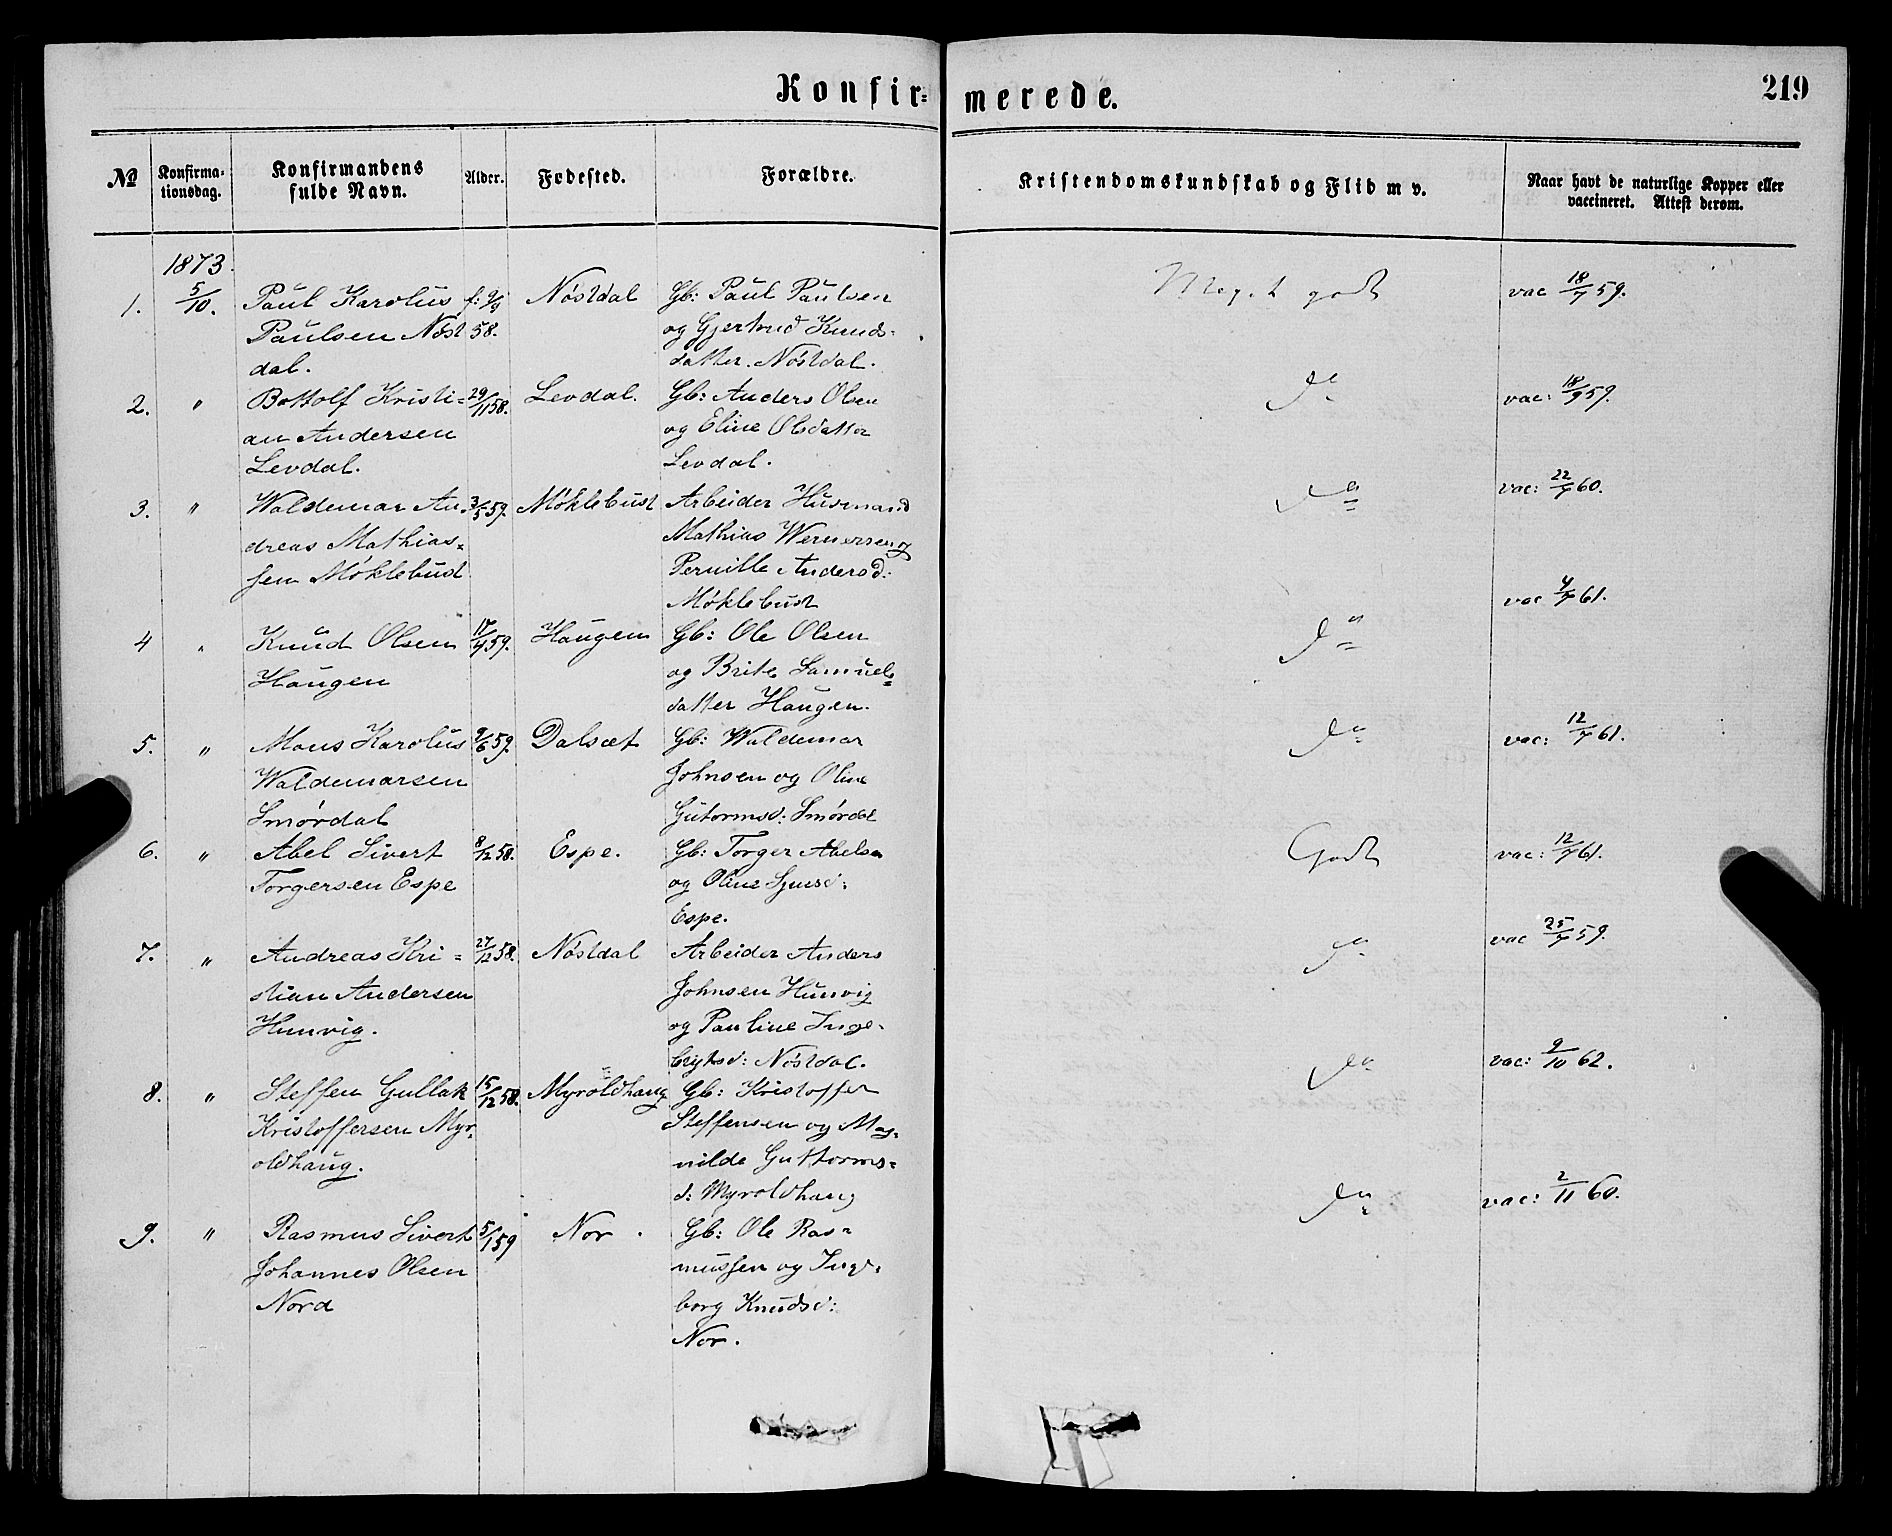 Konfir=
merede.
219
№
Konfirma-
tionsdag.
Konfirmandens
fulde Navn.
Alder.
Fødested.
Forældre.
Kristendomskundskab og Flid m v.
Naar havt de naturlige Kopper eller
vaccineret. Attest derom.
1873.
1. 5/10. Paul Karolus f: 9/9 Nöstdal Gb: Paul Paulsen Meget godt vac 18/7 59.
Paulsen Nöst 58. og Gjertrud Knuds-
dal. datter. Nöstdal.
2. " Bottolf Kristi= 29/11 58. Levdal. Gb: Anders Olsen do vac: 18/9 59.
an Andersen og Eline Olsdatter
Levdal. Levdal.
3. " Waldemar An- 3/5 59. Møklebust Arbeider Husmand do vac: 22/7 60.
dreas Mathias= Mathias Wernersen og
sen Møklebust Pernille Andersd:
Møklebust
4 " Knud Olsen 17/4 59. Haugen Gb: Ole Olsen do vac 4/7 61.
Haugen og Brite Samuels=
datter Haugen.
5. " Mons Karolus 9/6 59. Dalsæt Gb: Waldemar do vac: 12/7 61.
Waldemarsen Johnsen og Oline
Smördal Gutormsd: Smördal
6. " Abel Sivert 8/12 58. Espe. Gb: Torger Abelsen Godt vac: 12/7 61.
Torgersen Espe og Oline
Espe.
7. " Andreas Kri= 27/12 58. Nöstdal Arbeider Anders do vac 25/7 59.
stian Andersen Johnsen Hunvig
Hunvig. og Pauline Inge-
brigtsd: Nöstdal.
8. " Steffen Gullak 15/12 58. Myroldhaug Gb: Kristoffer do vac: 9/10 62.
Kristoffersen Myr- Steffensen og Mag-
oldhaug. nilde Guttorms=
d: Myroldhaug
9. " Rasmus Sivert 5/1 59 Nor. Gb: Ole Ras= do vac: 2/11 60.
Johannes Olsen mussen og Inge-
Nord borg Knudsd:
Nor.